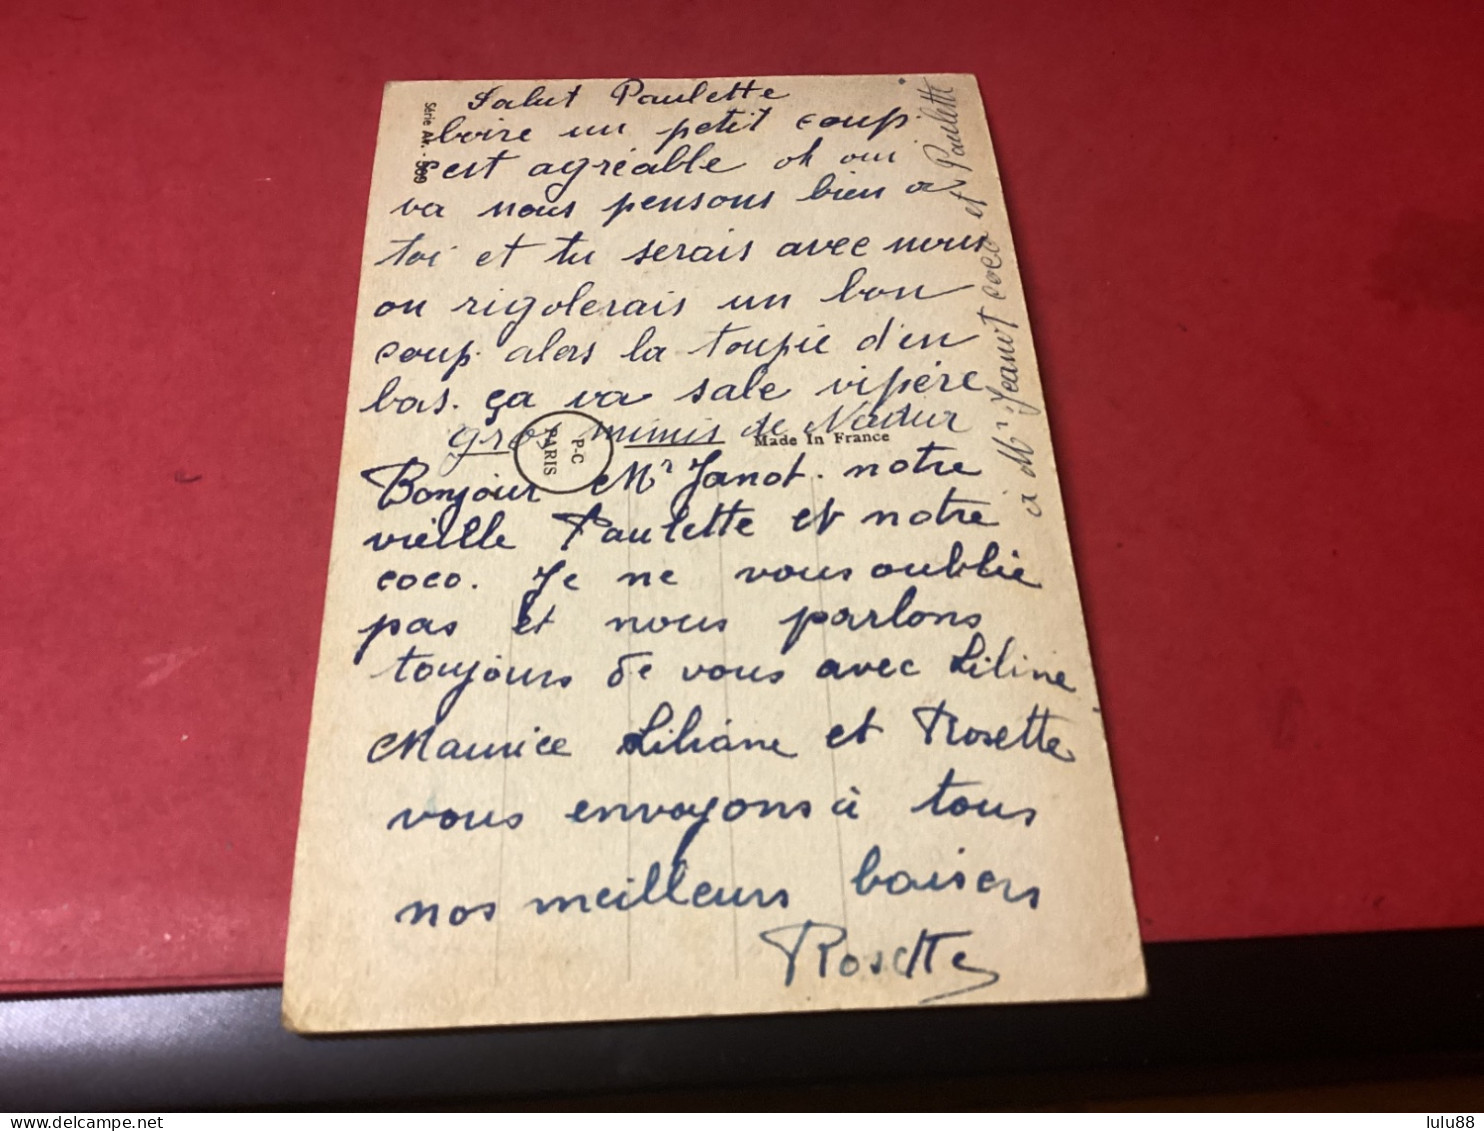 Salut Paulette
boire un petit coup
c'est agréable oh oui
va nous pensons bien a
toi et tu serais avec nous
on rigolerais un bon
coup. alors la toupie d'en
bas. ça va sale vipère
gros mimis de Nadur
Bonjour Mr Janot. notre
vieille Paulette et notre
coco. Je ne vous oublie
pas et nous parlons
toujours de vous avec Liline
Maurice Liliane et Rosette
vous envoyons à tous
nos meilleurs baisers
Rosette
à Mr Jeanot coco et Paulette
Série Av. - 569
P-C
PARIS
Made In France
delcampe.net
lulu88